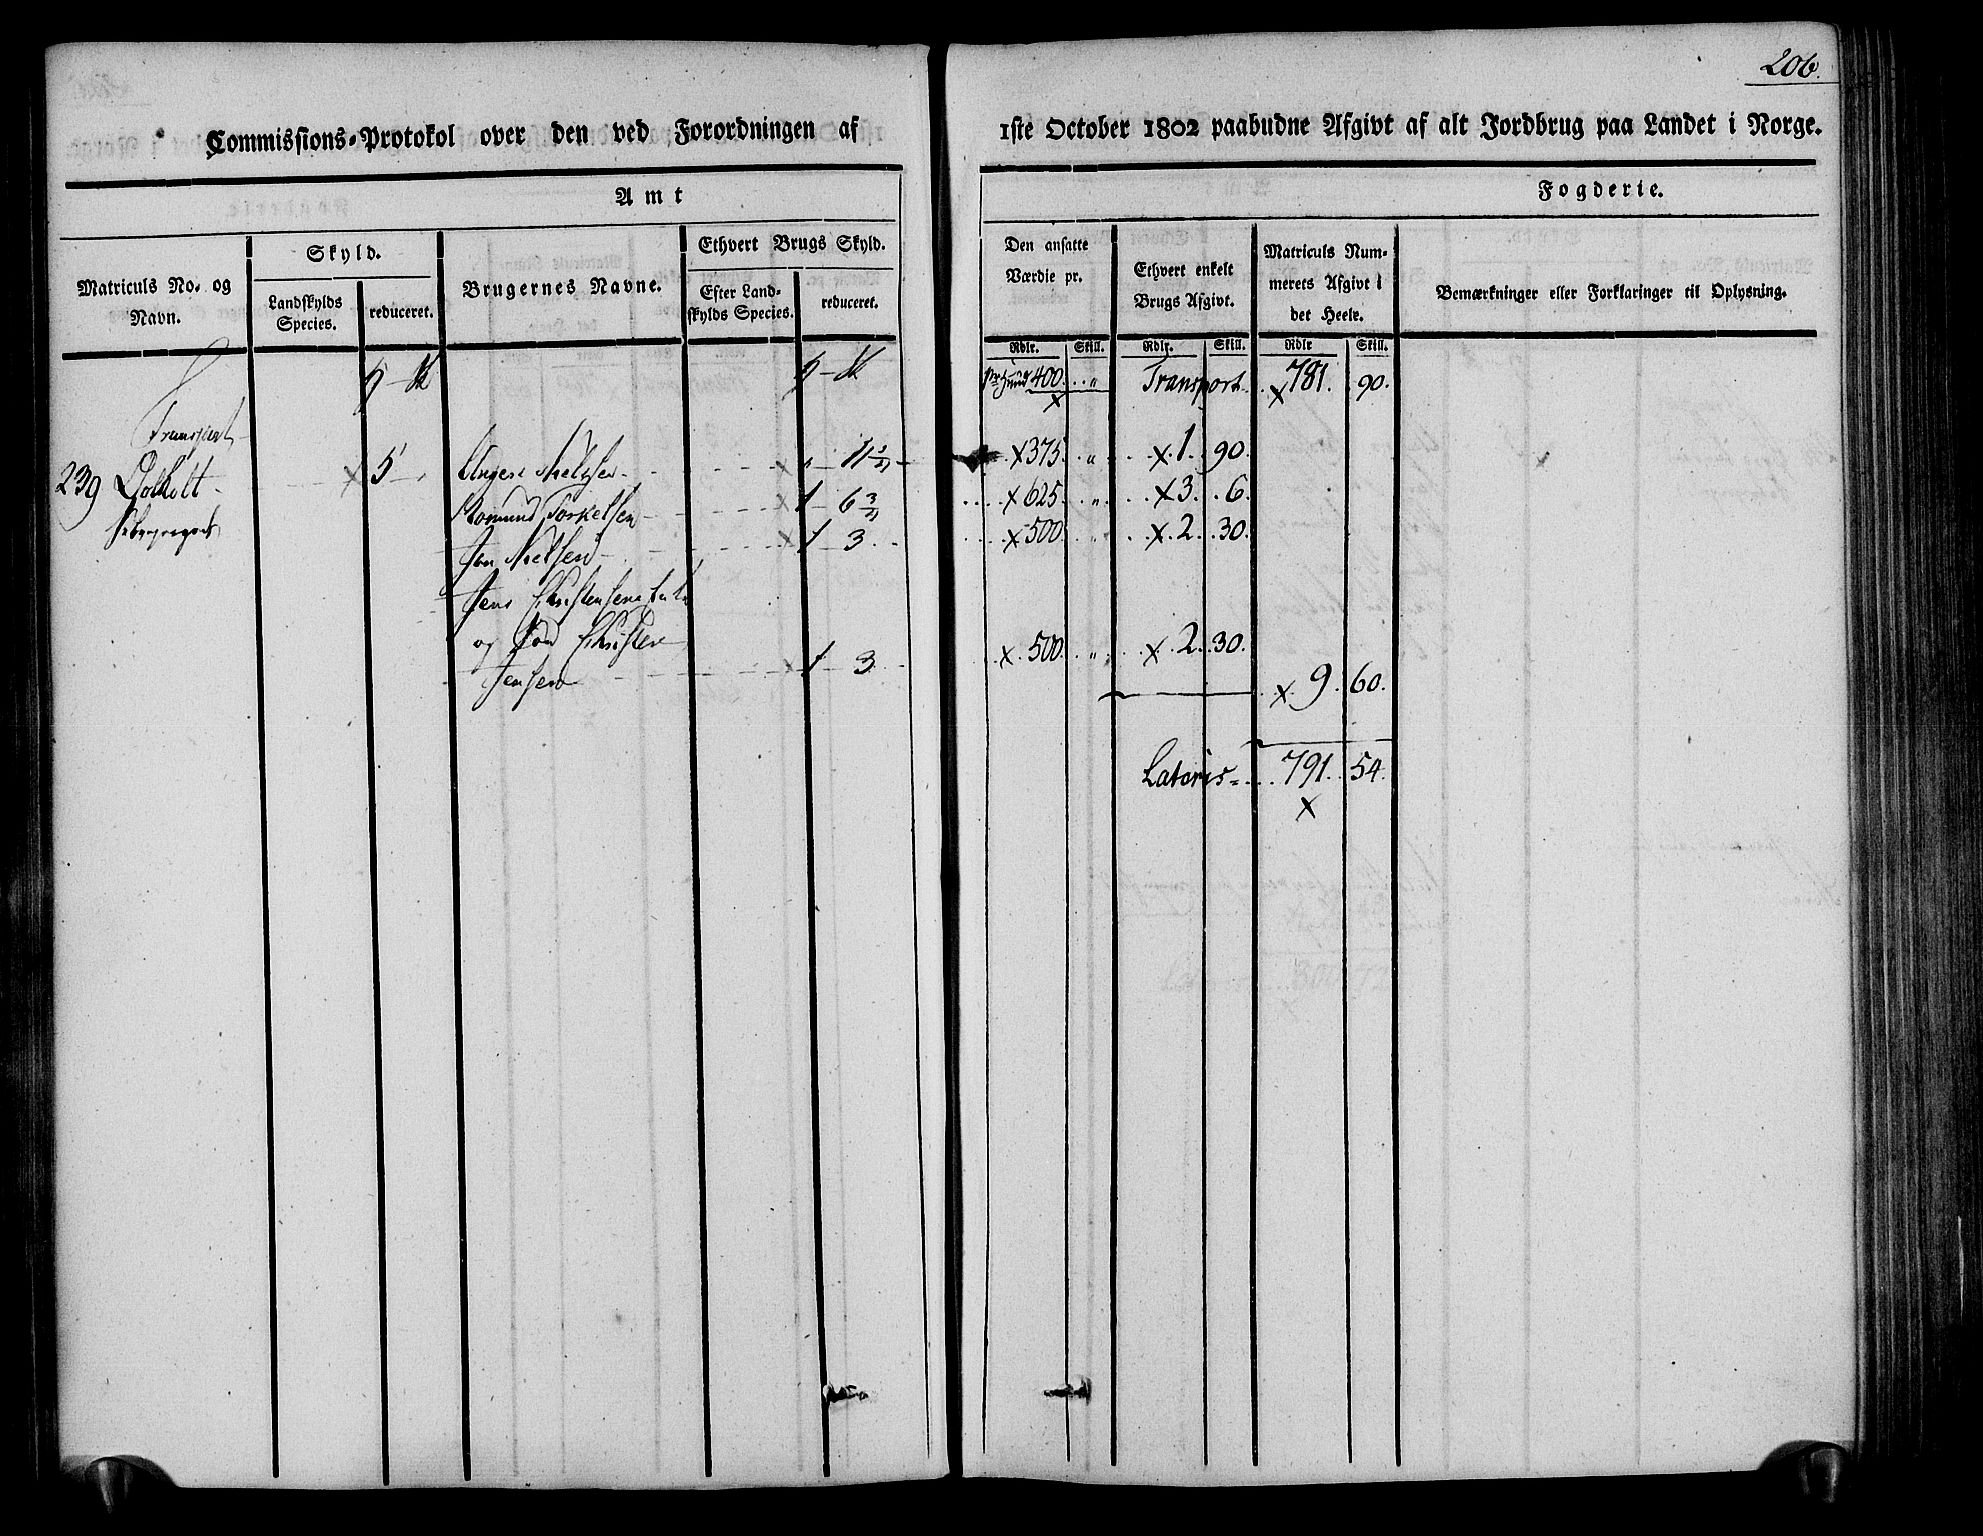 206.
Commissions-Protokol over den ved Forordningen af 1ste October 1802 paabudne Afgivt af alt Jordbrug paa Landet i Norge.
Amt Fogderie.
Matriculs No. og Navn.
Skyld.
Landskylds Species.
reduceret.
Brugernes Navne.
Ethvert Brugs Skyld.
Efter Landskylds Species.
reduceret.
Den ansatte Værdie pr.
Ethvert enkelt Brugs Afgivt.
Matriculs Nummerets Afgivt i det Heele.
Bemærkninger eller Forklaringer til Oplysning.
Rdlr. Skill. Rdlr. Skill. Rdlr Skill.
400. „ Transport. x 781. 90.
Transport
239 x 5 x „ 11 x 375. „ x 1. 90.
Torkelsen x 1 6 x 625. „ x 3. 6.
Jon Nielsen x 1 3 x 500. „ x 2. 30.
Jens Christensens
og Christen
Jensen x 1 3 x 500. „ x 2. 30.
x 9. 60.
Lateris 791. 54.
x